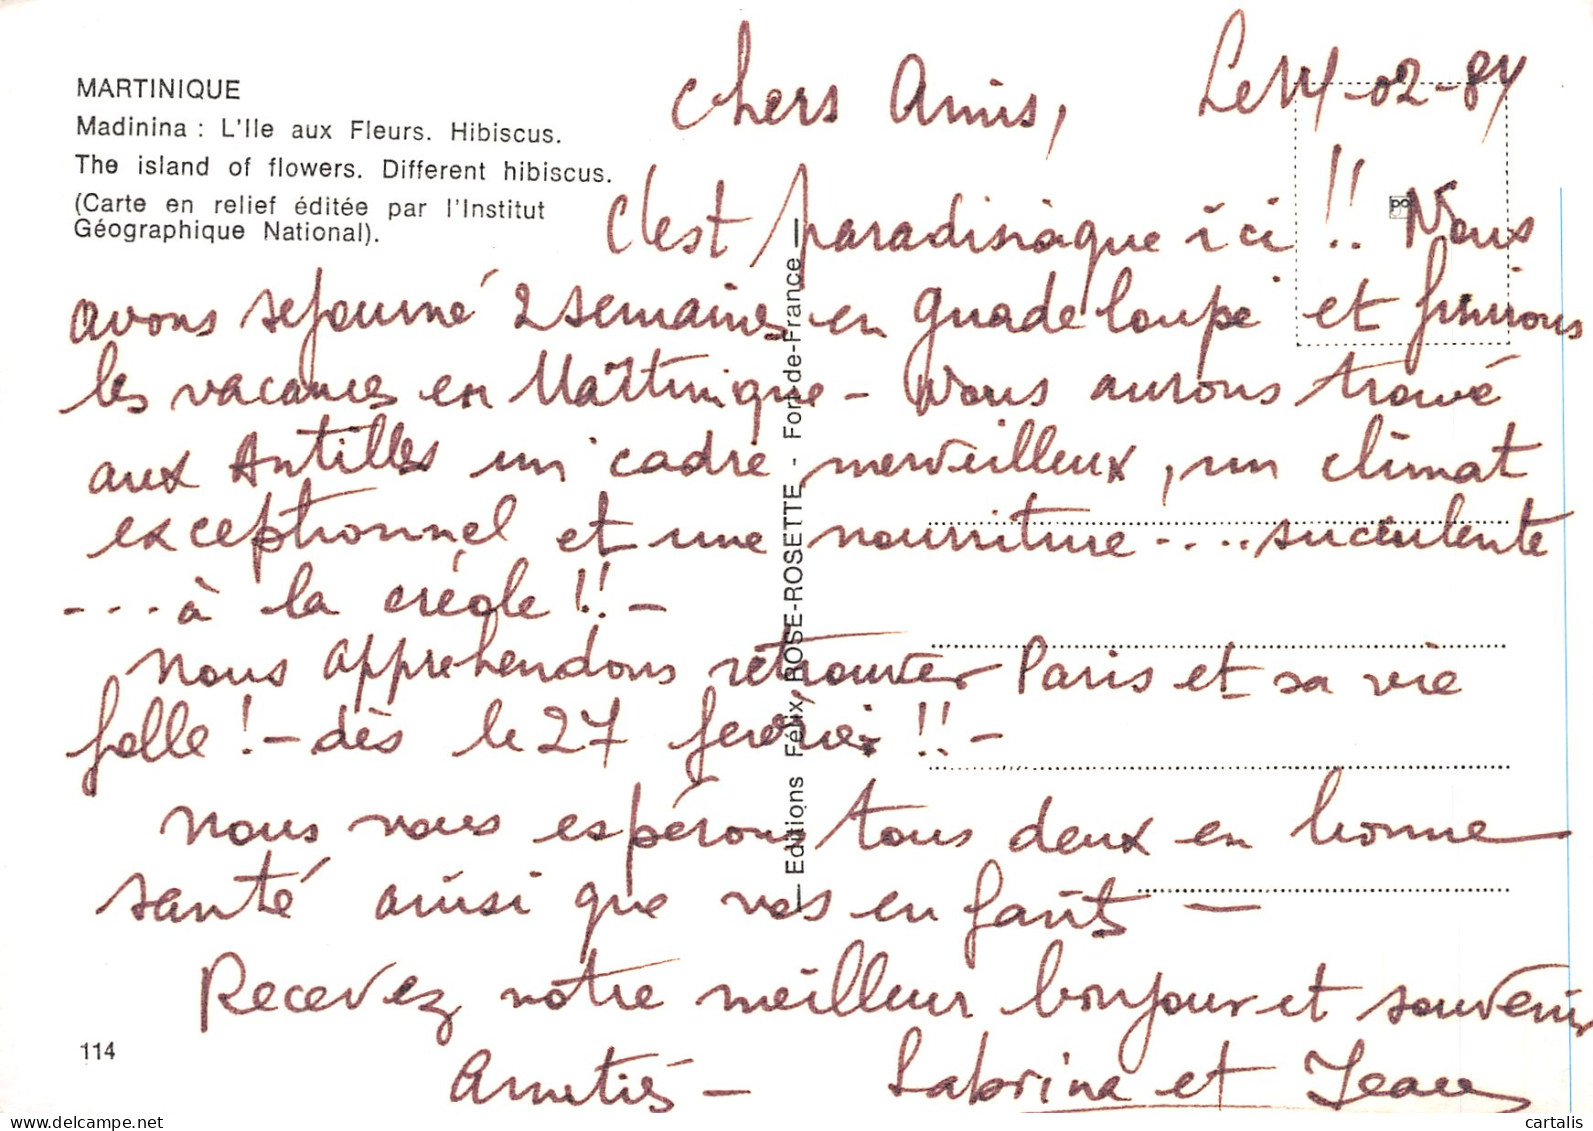 MARTINIQUE
Madinina : L'Ile aux Fleurs. Hibiscus.
The island of flowers. Different hibiscus.
(Carte en relief éditée par l'Institut
Géographique National).
Chers Amis,
Le 14-02-84
C'est paradisiaque ici !! Nous
avons séjourné 2 semaines en guadeloupe et finirons
les vacances en Martinique - Nous aurons trouvé
aux Antilles un cadre merveilleux, un climat
exceptionnel et une nourriture .... succulente
... à la créole !! -
Nous apprehendons retrouver Paris et sa vie
folle ! - dès le 27 fevrier !! -
Nous vous espérons tous deux en bonne
santé ainsi que vos enfants -
Recevez notre meilleur bonjour et souvenir
Amitiés -
Sabrina et Jean
Editions Félix ROSE-ROSETTE - Fort-de-France
114
cartalis